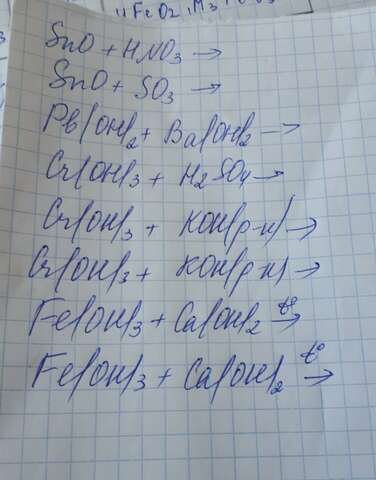 SnO + HNO₃ →
SnO + SO₃ →
Pb(OH)₂ + Ba(OH)₂ →
Cr(OH)₃ + H₂SO₄ →
Cr(OH)₃ + KOH(р-н) →
Cr(OH)₃ + KOH(р-н) →
Fe(OH)₃ + Ca(OH)₂ t° →
Fe(OH)₃ + Ca(OH)₂ t° →